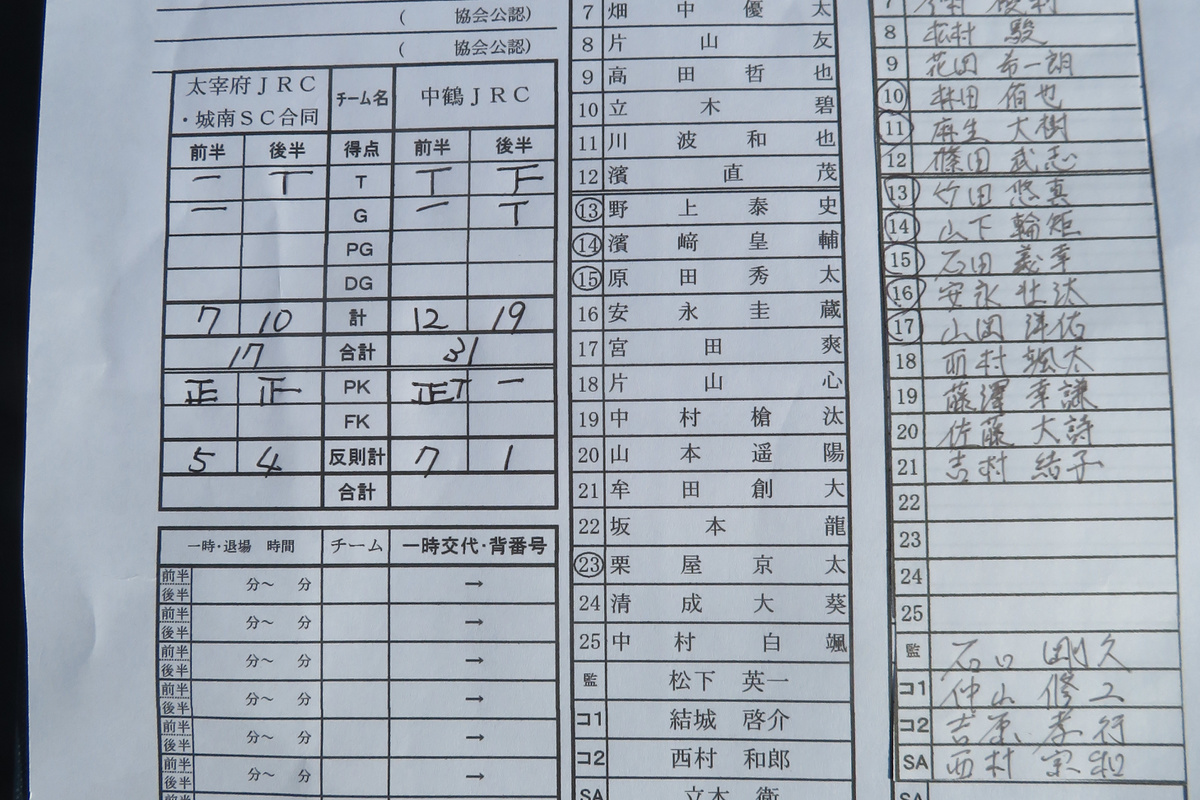 ( 協会公認)
( 協会公認)
太宰府JRC・城南SC合同 チーム名 中鶴JRC
前半 後半 得点 前半 後半
一 T T T 下
一 G 一 T
PG
DG
7 10 計 12 19
17 合計 31
正 正 PK 正T 一
FK
5 4 反則計 7 1
合計
一時・退場 時間 チーム 一時交代・背番号
前半 後半 分～ 分 →
前半 後半 分～ 分 →
前半 後半 分～ 分 →
前半 後半 分～ 分 →
前半 後半 分～ 分 →
前半 後半 分～ 分 →
7 畑中優太
8 片山友
9 高田哲也
10 立木碧
11 川波和也
12 濱直茂
⑬ 野上泰史
⑭ 濱﨑皇輔
⑮ 原田秀太
16 安永圭蔵
17 宮田爽
18 片山心
19 中村槍汰
20 山本遥陽
21 牟田創大
22 坂本龍
㉓ 栗屋京太
24 清成大葵
25 中村白颯
監 松下 英一
コ1 結城 啓介
コ2 西村 和郎
SA 立木 衛
7
8 松村 駿
9 花田 希一朗
⑩ 林田 侑也
⑪ 麻生 大樹
12 篠田 武志
⑬ 竹田 悠真
⑭ 山下 輪矩
⑮ 石田 義幸
⑯ 安永 壮汰
⑰ 山岡 洋佑
18 西村 颯太
19 藤澤 幸謙
20 佐藤 大詩
21 吉村 結子
22
23
24
25
監 石口 剛久
コ1 仲山 修二
コ2 吉原 孝行
SA 西村 宗和
SA